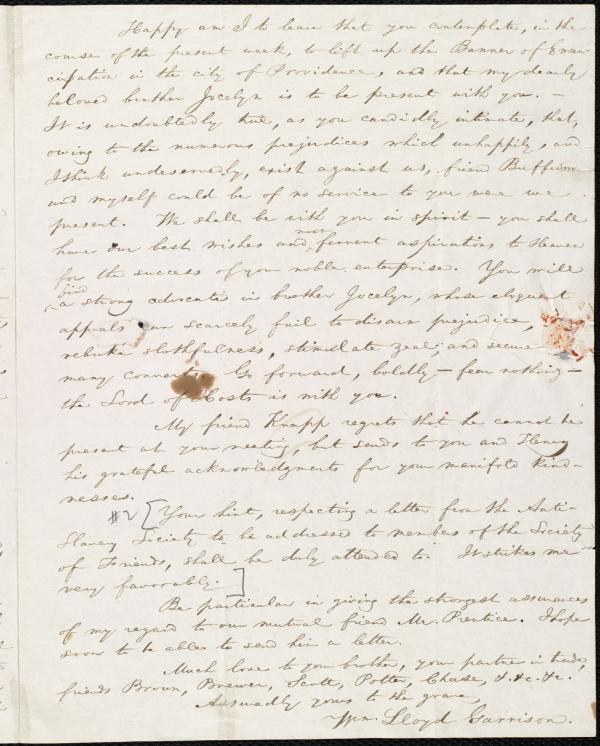 Happy am I to learn that you contemplate, in the
course of the present week, to lift up the Banner of Eman-
cipation in the city of Providence, and that my dearly
beloved brother Jocelyn is to be present with you. —
It is undoubtedly true, as you candidly intimate, that,
owing to the numerous prejudices which unhappily, and
I think undeservedly, exist against us, friend Buffum
and myself could be of no service to you were we
present. We shall be with you in spirit — you shall
most
have our best wishes and fervent aspirations to Heaven
for the success of your noble enterprise. You will
find
a strong advocate in brother Jocelyn, whose eloquent
appeals can scarcely fail to disarm prejudice,
rebuke slothfulness, stimulate zeal, and secure
many converts. Go forward, boldly — fear nothing —
the Lord of Hosts is with you.
My friend Knapp regrets that he cannot be
present at your meeting, but sends to you and Henry
his grateful acknowledgments for your manifold kind-
nesses.
#2 [Your hint, respecting a letter from the Anti-
Slavery Society to be addressed to members of the Society
of Friends, shall be duly attended to. It strikes me
very favorably.]
Be particular in giving the strongest assurances
of my regard to our mutual friend Mr. Prentice. I hope
soon to be able to send him a letter.
Much love to your brother, your partner in trade,
friends Brown, Brewer, Scott, Potter, Chase, &c. &c.
Assuredly yours to the grave,
Wm. Lloyd Garrison.